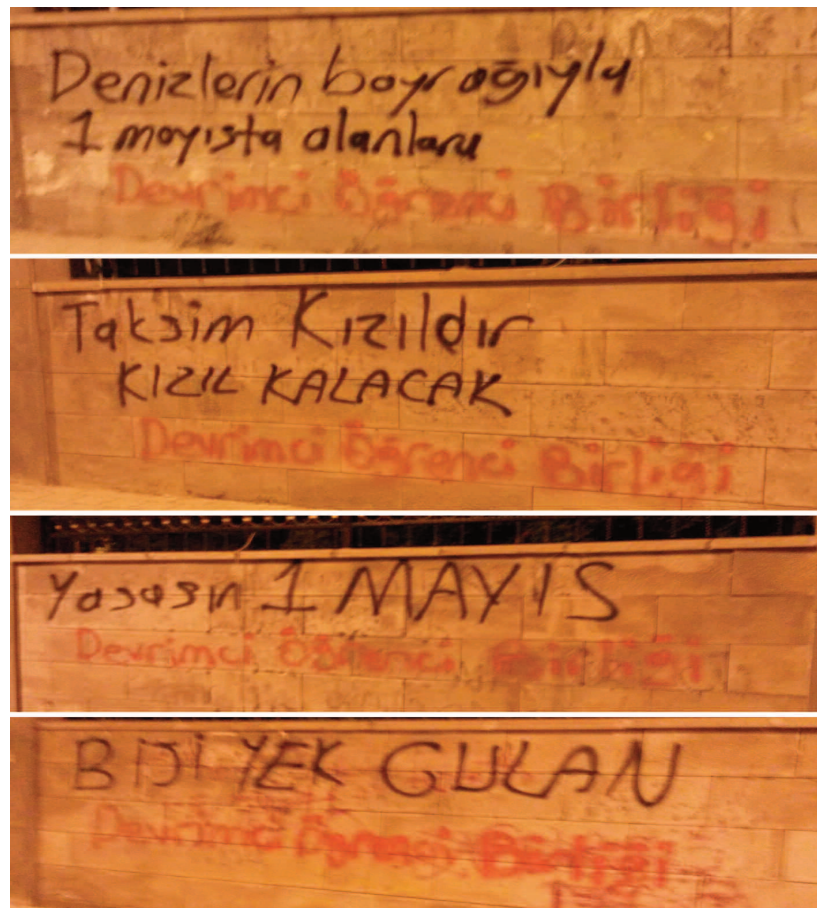 Denizlerin bayrağıyla
1 mayısta alanlara
Devrimci Öğrenci Birliği
Taksim Kızıldır
KIZIL KALACAK
Devrimci Öğrenci Birliği
Yaşasın 1 MAYIS
Devrimci Öğrenci Birliği
BIJI YEK GULAN
Devrimci Öğrenci Birliği